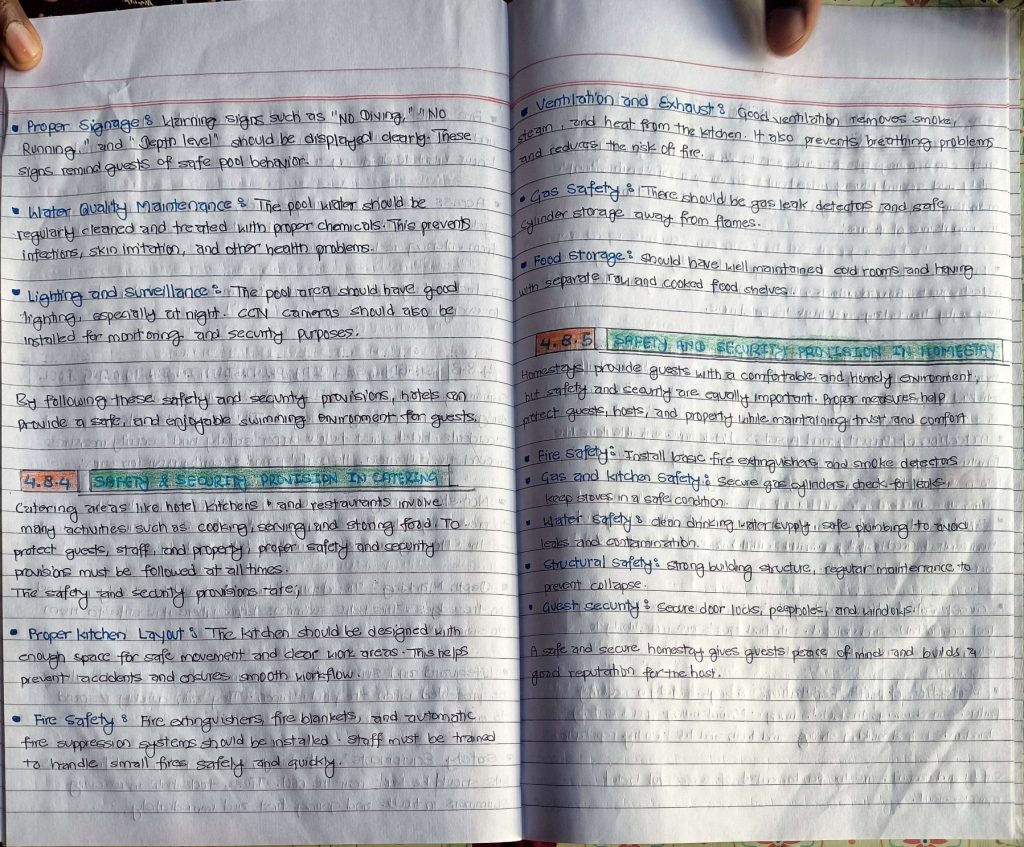 • Proper Signage : Warning signs such as "No Diving," "No
Running," and "Depth level" should be displayed clearly. These
signs remind guests of safe pool behavior.
• Water Quality Maintenance : The pool water should be
regularly cleaned and treated with proper chemicals. This prevents
infections, skin irritation, and other health problems.
• Lighting and Surveillance : The pool area should have good
lighting, especially at night. CCTV cameras should also be
installed for monitoring and security purposes.
By following these safety and security provisions, hotels can
provide a safe, and enjoyable swimming environment for guests.
4.8.4 SAFETY & SECURITY PROVISION IN CATERING
Catering areas like hotel kitchens and restaurants involve
many activities such as cooking, serving, and storing food. To
protect guests, staff, and property, proper safety and security
provisions must be followed at all times.
The safety and security provisions are;
• Proper kitchen Layout : The kitchen should be designed with
enough space for safe movement and clear work areas. This helps
prevent accidents and ensures smooth workflow.
• Fire Safety : Fire extinguishers, fire blankets, and automatic
fire suppression systems should be installed. Staff must be trained
to handle small fires safely and quickly.
• Ventilation and Exhaust : Good ventilation removes smoke,
steam, and heat from the kitchen. It also prevents breathing problems
and reduces the risk of fire.
• Gas Safety : There should be gas leak detectors and safe
cylinder storage away from flames.
• Food Storage : should have well maintained cold rooms and having
with separate raw and cooked food shelves.
4.8.5 SAFETY AND SECURITY PROVISION IN HOMESTAY
Homestays provide guests with a comfortable and homely environment,
but safety and security are equally important. Proper measures help
protect guests, hosts, and property while maintaining trust and comfort
• Fire safety : Install basic fire extinguishers and smoke detectors
• Gas and kitchen safety : Secure gas cylinders, check for leaks,
keep stoves in a safe condition.
• Water safety : clean drinking water supply, safe plumbing to avoid
leaks and contamination.
• Structural safety : strong building structure, regular maintenance to
prevent collapse.
• Guest security : Secure door locks, peepholes, and windows.
A safe and secure homestay gives guests peace of mind and builds a
good reputation for the host.